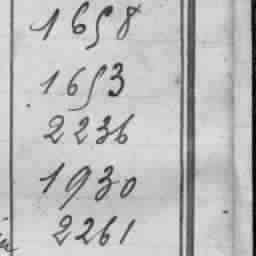 1658
1653
2236
1930
2261